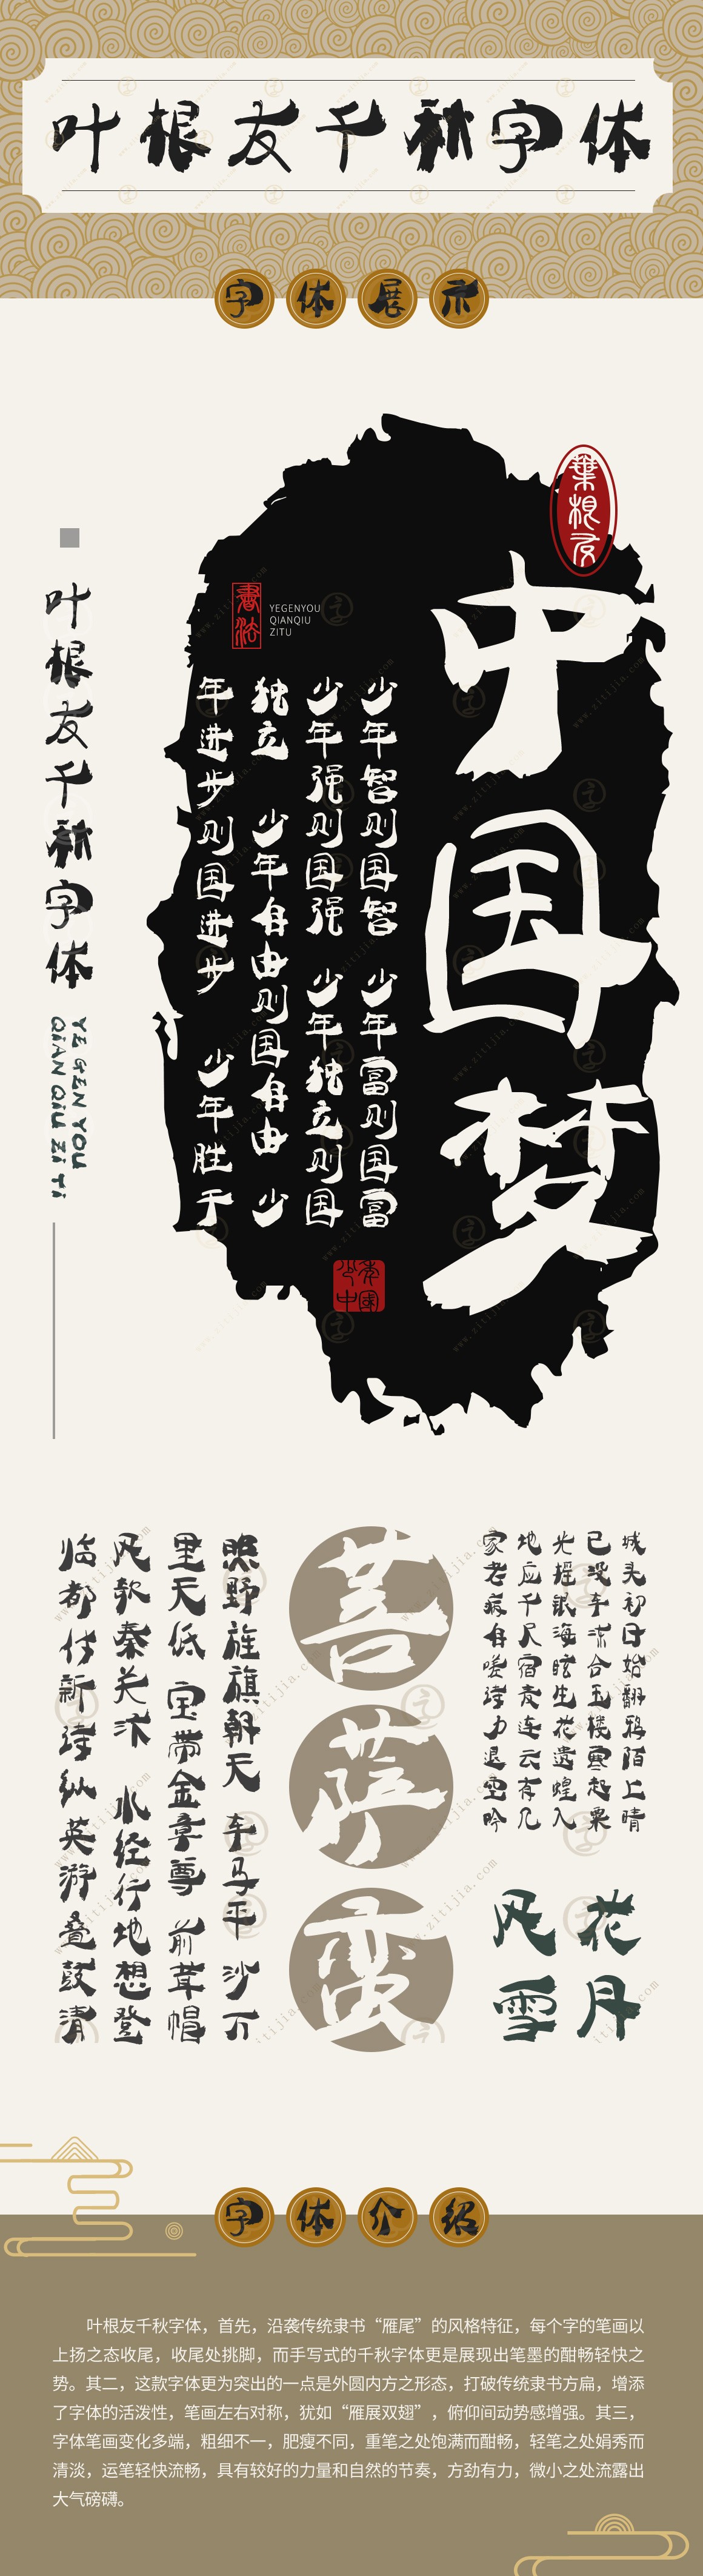 叶根友千秋字体
字体展示
葉根友
中国梦
書法
YEGENYOU
QIANQIU
ZITU
少年智则国智 少年富则国富
少年强则国强 少年独立则国
独立 少年自由则国自由 少
年进步则国进步 少年胜于
少年中國
叶根友千秋字体
YE GEN YOU
QiAN QiU Zi Ti
城头初日始翻鸦陌上晴
已没车冻合玉楼寒起粟
光摇银海眩生花遗蝗入
地应千尺宿麦连云有几
家老病自嗟诗力退空吟
花月
风雪
菩萨蛮
照野旌旗朝天 车马平 沙万
里天低 宝带金章尊 前茸帽
风欹秦关汴 水经行地想登
临都付新诗纵英游叠鼓清
字体介绍
叶根友千秋字体，首先，沿袭传统隶书“雁尾”的风格特征，每个字的笔画以
上扬之态收尾，收尾处挑脚，而手写式的千秋字体更是展现出笔墨的酣畅轻快之
势。其二，这款字体更为突出的一点是外圆内方之形态，打破传统隶书方扁，增添
了字体的活泼性，笔画左右对称，犹如“雁展双翅”，俯仰间动势感增强。其三，
字体笔画变化多端，粗细不一，肥瘦不同，重笔之处饱满而酣畅，轻笔之处娟秀而
清淡，运笔轻快流畅，具有较好的力量和自然的节奏，方劲有力，微小之处流露出
大气磅礴。
www.zitijia.com